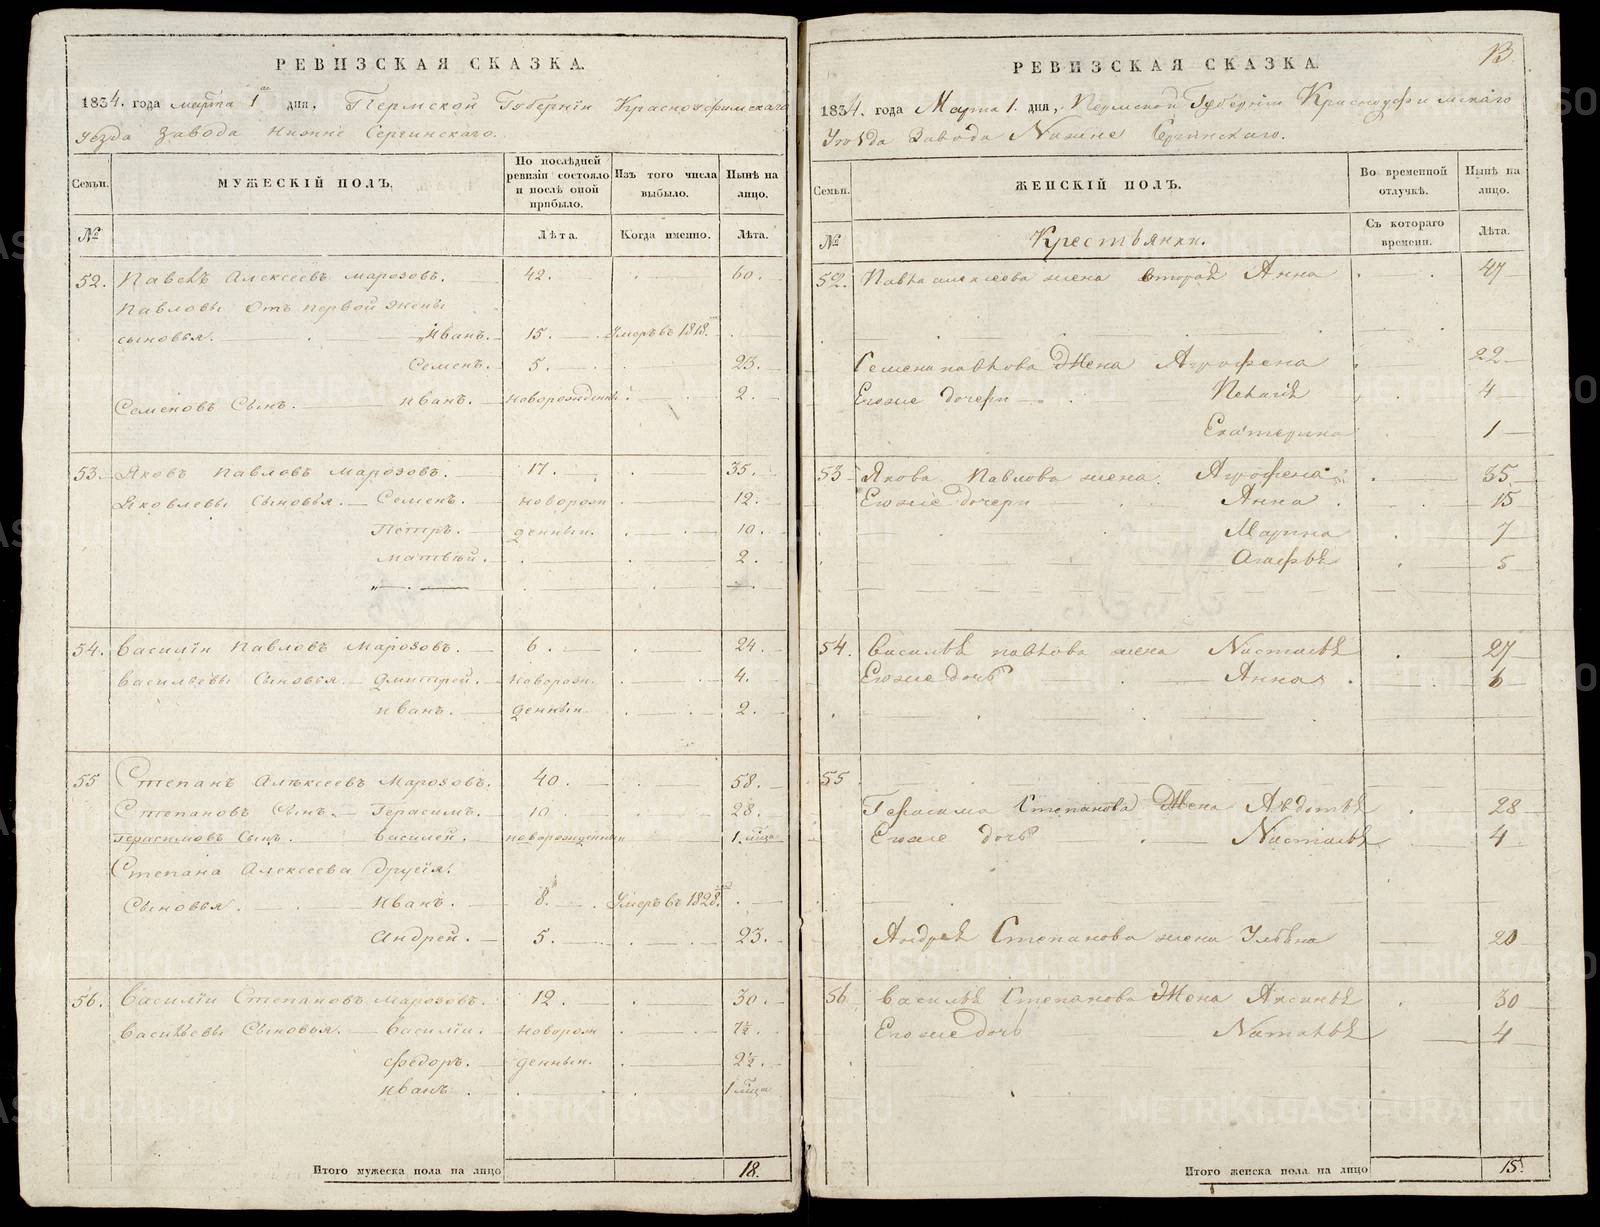 РЕВИЗСКАЯ СКАЗКА.
1834. года марта 1 дня, Пермской Губернїи Красноуфимскаго
уезда Завода Нижне Сергинскаго.
Семьи. МУЖЕСКІЙ ПОЛЪ. По послѣдней ревизіи состояло и послѣ оной прибыло. Изъ того числа выбыло. Нынѣ на лицо.
№ Лѣта. Когда именно. Лѣта.
52. Павелъ Алексеевъ марозовъ. 42. 60.
Павловы Отъ первой жены
сыновья. Иванъ. 15. Умеръ въ 1818.
Семенъ. 5. 23.
Семеновъ Сынъ. иванъ. новорожденны 2.
53. Яковъ павловъ марозовъ. 17. 35.
Яковлевы Сыновья. Семенъ. новорож 12.
Петръ. денныи. 10.
матвѣй. 2.
54. Василїи Павловъ Марозовъ. 6. 24.
Васильевы Сыновья. Дмитрей. новорож. 4.
иванъ. денныи. 2.
55 Степанъ Алѣксеевъ Марозовъ. 40. 58.
Степановъ Сынъ. Герасимъ. 10. 28.
Герасимовъ Сынъ. Василей. новорожденныи 1.
Степана Алексеева другїя.
Сыновья. Иванъ. 8. Умеръ въ 1828.
Андрей. 5. 23.
56. Василїи Степановъ Марозовъ. 12. 30.
Васильевы Сыновья. Василїи. новорож 7½.
федоръ. денныи. 2½.
иванъ. 1
Итого мужеска пола на лицо 18.
13.
РЕВИЗСКАЯ СКАЗКА.
1834. года Марта 1. дня, Пермской Губернїи Красноуфимскаго
Уезда Завода Нижне Сергинскаго.
Семьи. ЖЕНСКІЙ ПОЛЪ. Во временной отлучкѣ. Нынѣ на лицо.
№ Крестьянки. Съ котораго времени. Лѣта.
52. Павла алексеева жена вторая Анна 47
Семена павлова Жена Агрофена 22
Егоже дочери 4
Екатерина 1
53 Якова Павлова жена. Агрофена 35
Егоже дочери Анна 15
Марина 7
Агафья 5
54. Василья павлова жена Настасья 27
Егоже дочь Анна 6
55
Герасима Степанова Жена Авдотья 28
Егоже дочь Настасья 4
Андрея Степанова жена Ульяна 20
56 Василья Степанова Жена Аксинья 30
Егоже дочь Наталья 4
Итого женска пола на лицо 15.
METRIKI.GASO-URAL.RU